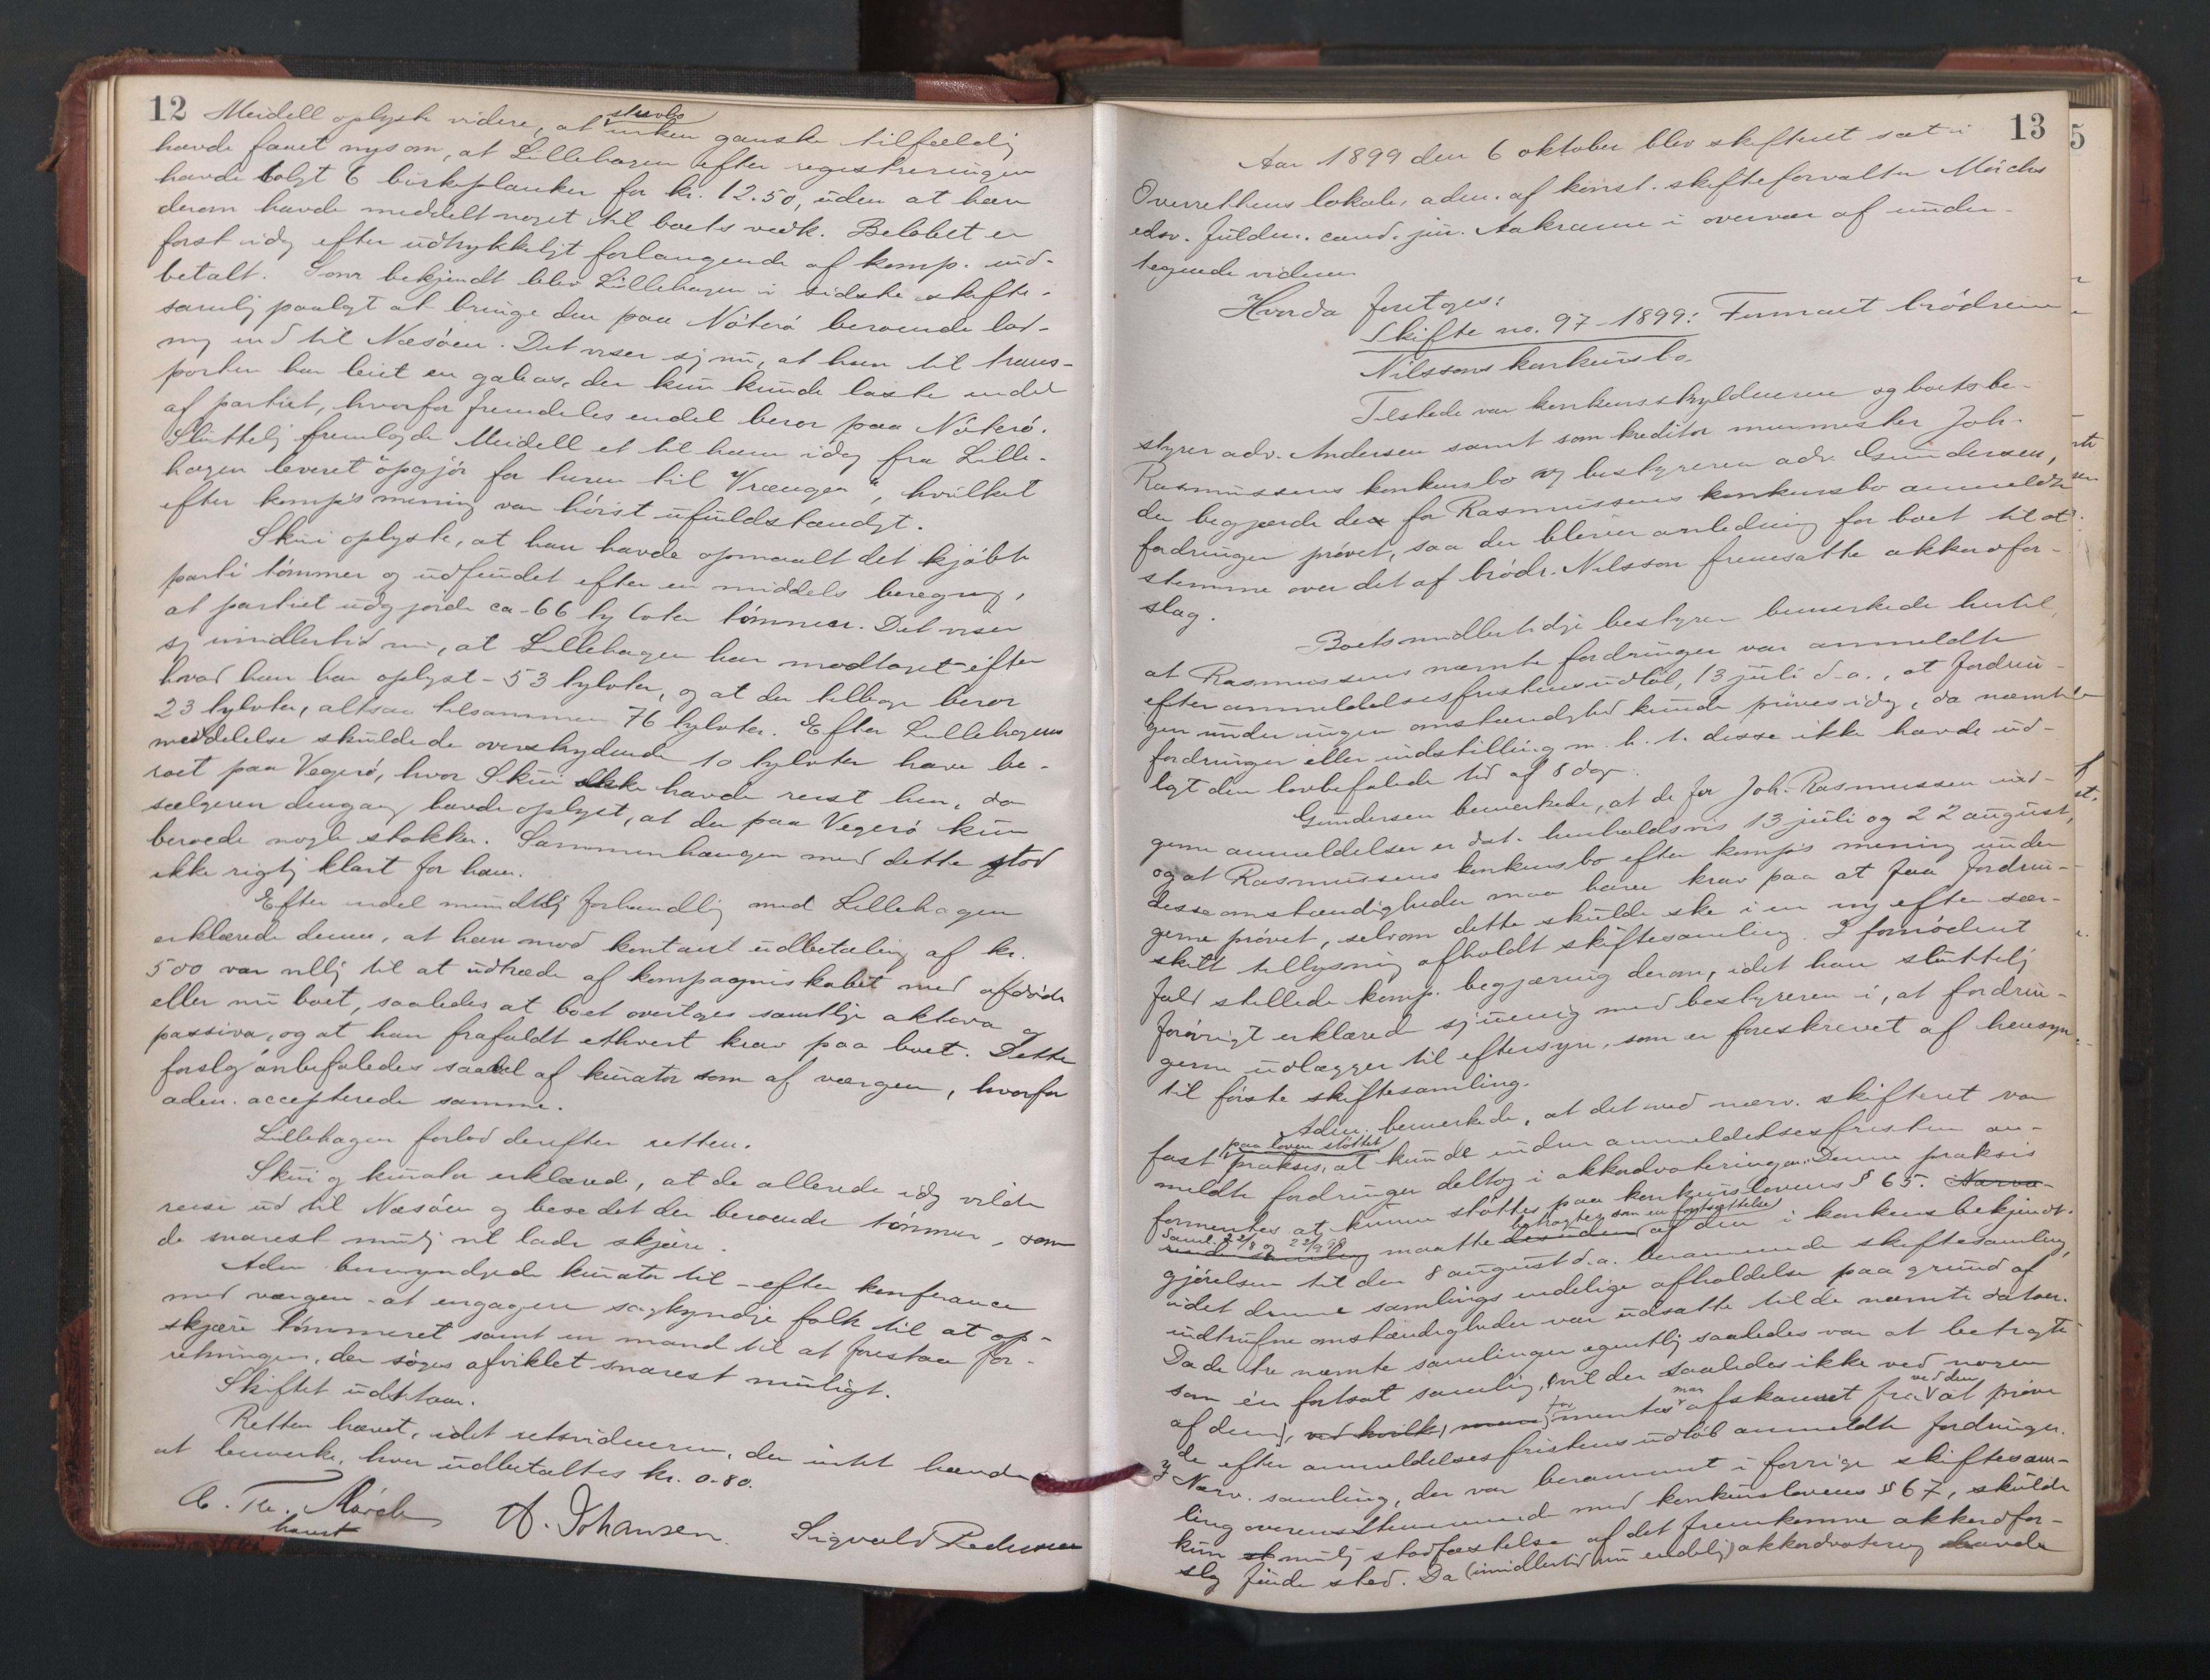 12
Meidell oplyste videre, at enken ganske tilfældig
havde faaet nys om, at Lillehagen efter registreringen
havde solgt 6 birkeplanker for kr. 12.50, uden at han
derom havde meddelt noget til boets vedk. Beløbet er
først idag efter udtrykkeligt forlangende af komp. ind-
betalt. Som bekjendt blev Lillehagen i sidste skifte-
samlig paalagt at bringe den paa Nøterø beroende lad-
ning ind til Næsøen. Det viser sig nu, at han til trans-
porten har leiet en galeas, der kun kunde laste endel
af partiet, hvorfor fremdeles endel beror paa Nøterø.
Sluttelig fremlagde Meidell et til ham idag fra Lille-
hagen leveret "opgjør for turen til Vrængen", hvilket
efter komp's mening var høist ufuldstændigt.
Skui oplyste, at han havde opmaalt det kjøbte
parti tømmer og udfundet efter en middels beregng,
at partiet udgjorde ca. 66 tylvter tømmer. Det viser
sig imidlertid nu, at Lillehagen har modtaget - efter
hvad han har oplyst - 53 tylvter, og at der tilbage beror
23 tylvter, altsaa tilsammen 76 tylvter. Efter Lillehagens
meddelelse skulde de overskydende 10 tylvter have be-
roet paa Vegerø, hvor Skui ikke havde reist hen, da
sælgeren dengang havde oplyst, at der paa Vegerø kun
beroede nogle stokker. Sammenhængen med dette stod
ikke rigtig klart for ham.
Efter endel mundtlig forhandlig med Lillehagen
erklærede denne, at han mod kontant udbetaling af kr.
500 var villig til at udtræde af kompagniskabet med afdøde
eller nu boet, saaledes at boet overtages samtlige aktiva og
passiva, og at han frafaldt ethvert krav paa boet. Dette
forslag anbefaledes saavel af kurator som af værgen, hvorfor
adm. accepterede samme.
Lillehagen forlod derefter retten.
Skui og kurator erklæred, at de allerede idag vilde
reise ud til Næsøen og bese det der beroende tømmer, som
de snarest mulig vil lade skjære.
Adm bemyndigede kurator til - efter konferance
med værgen - at engagere sagkyndige folk til at op-
skjære tømmeret samt en mand til at forestaa for-
retningen, der søges afviklet snarest muligt.
Skiftet udstaar.
Retten hævet, idet retsvidnerne, der intet havde
at bemerke, hver udbetaltes kr. 0.80.
C. Th. Mørch
konst
A. Johansen. Sigvald Pedersen
13
Aar 1899 den 6 oktober blev skifteret sat i
Overrettens lokale, adm. af konst. skifteforvalter Mörchs
edsv. fuldm. cand. jur. Aakrann i overvær af under-
tegnede vidner
Hvorda foretoges:
Skifte no. 97-1899: Firmaet brødrene
Nilssons konkursbo.
Tilstede var konkursskyldnerne og boets be-
styrer adv. Andersen samt som kreditor murmester Joh.
Rasmussens konkursbo ved bestyreren adv. Gundersen,
der begjærede de for Rasmussens konkursbo anmeldte
fordringer prøvet, saa der blev anledning for boet til at
stemme over det af brødr. Nilsson fremsatte akkordfor-
slag.
Boets midlertidige bestyrer bemerkede hertil,
at Rasmussens nævnte fordringer var anmeldte
efter anmeldelsesfristens udløb, 13 juli d.a., at fordrin-
gen under ingen omstændighed kunde prøves idag, da nævnte
fordringer eller indstilling m. h. t. disse ikke havde ud-
ligt den lovbefalede tid af 8 dage.
Gundersen bemerkede, at de for Joh. Rasmussen ind-
gerne anmeldelser er dat. henholdsvis 13 juli og 22 august,
og at Rasmussens konkursbo efter komp's mening under
disse omstændigheder maa have krav paa at faa fordrin-
gerne prøvet, selvom dette skulde ske i en ny efter sær-
skilt tillysning afholdt skiftesamling. I fornødent
fald stillede komp. begjæring derom, idet han sluttelig
forøvrigt erklæred sig uenig med bestyreren i, at fordrin-
gerne udlægges til eftersyn, som er foreskrevet af hensyn
til første skiftesamling.
Adm. bemerkede, at det ved nærv. skifteret var
paa loven støttet
fast praksis, at kun de inden anmeldelsesfristen an-
meldte fordringer deltog i akkordvoteringen. Denne praksis
formentes at kunne støttes paa konkurslovens § 65.
Saml. 22/8 og 22/9 99 maatte betragtes som en fortsættelse af den i konkursbekjendt-
gjørelsen til den 8 august d.a. berammede skiftesamling,
idet denne samlings endelige afholdelse paa grund af
indtrufne omstændigheder var udsatte til de nævnte datoer.
Da de tre nævnte samlinger egentlig saaledes var at betragte
som én fortsat samling, vil der saaledes ikke ved nogen
af dem, formentes man afskaaret fra ved den at prøve
de efter anmeldelsesfristens udløb anmeldte fordringer.
Nærv. samling, der var berammet i forrige skiftesam-
ling overensstemmend med konkurslovens § 67, skulde
kun mulig stadfæstelse af det fremkomne akkordfor-
slag finde sted. Da (imidlertid nu endelig) akkordvotering havde